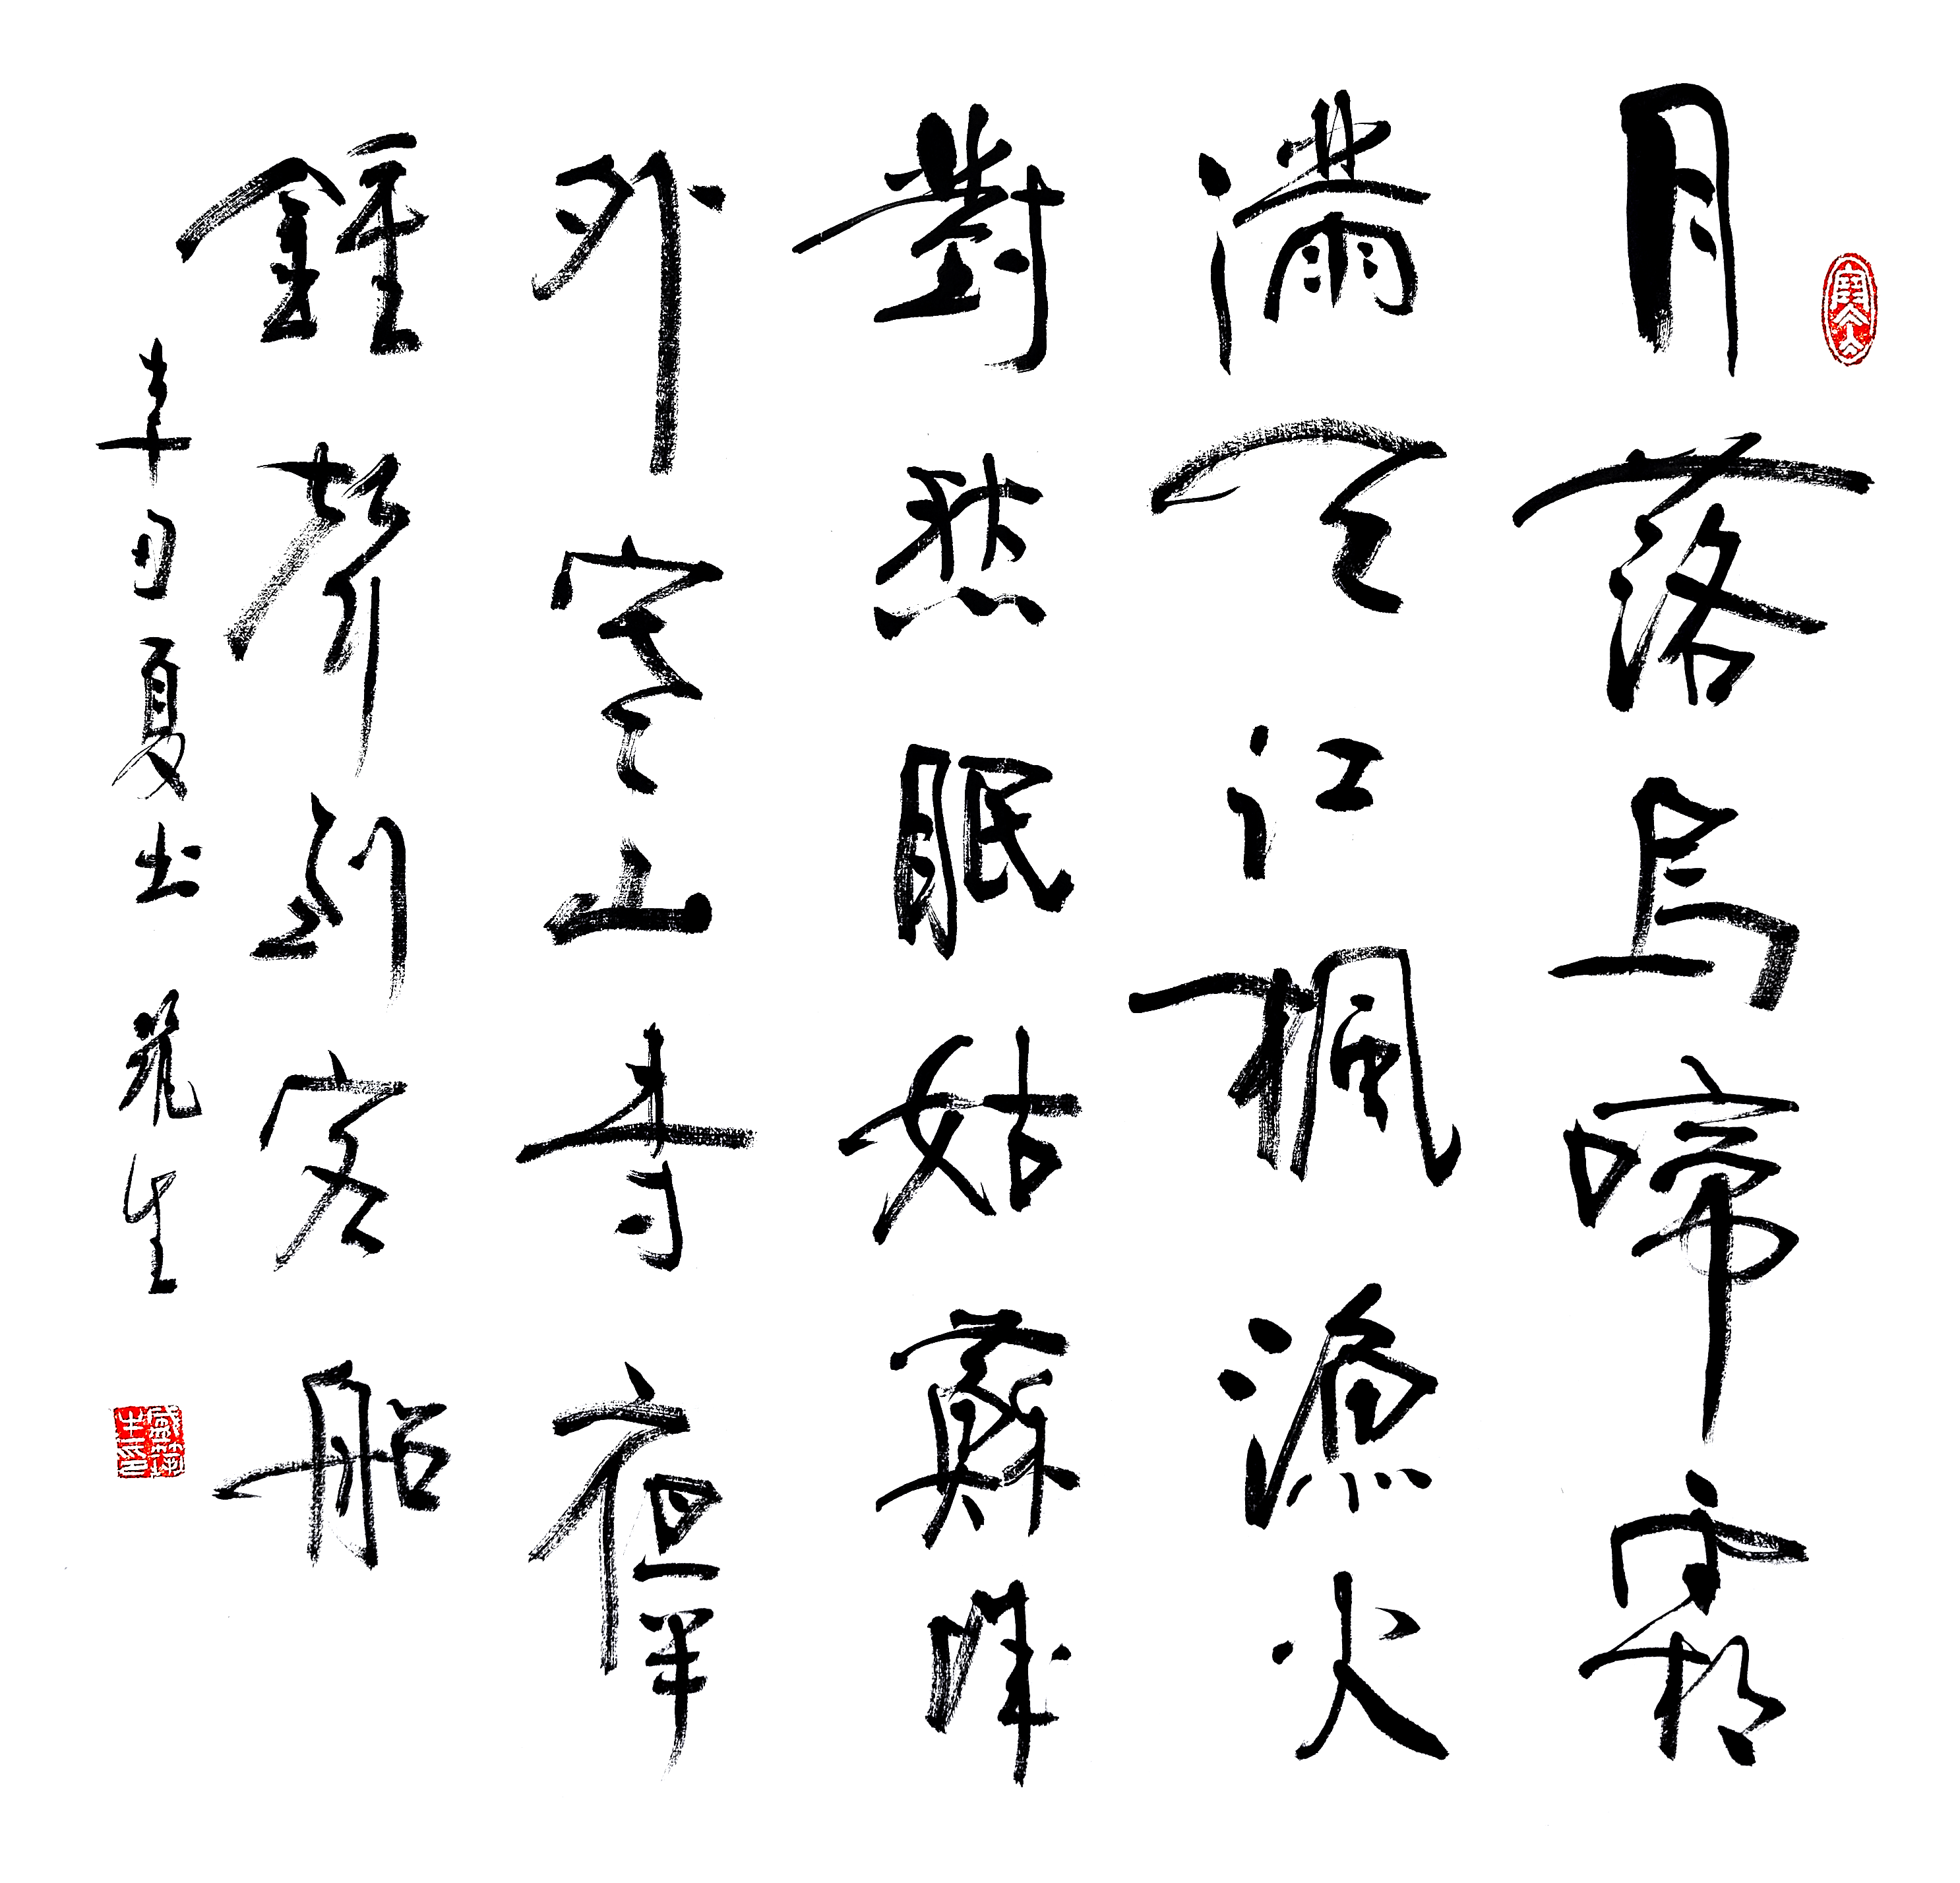 月落烏啼霜
滿天江楓漁火
對愁眠姑蘇城
外寒山寺夜半
鍾聲到客船
辛丑夏出筑生